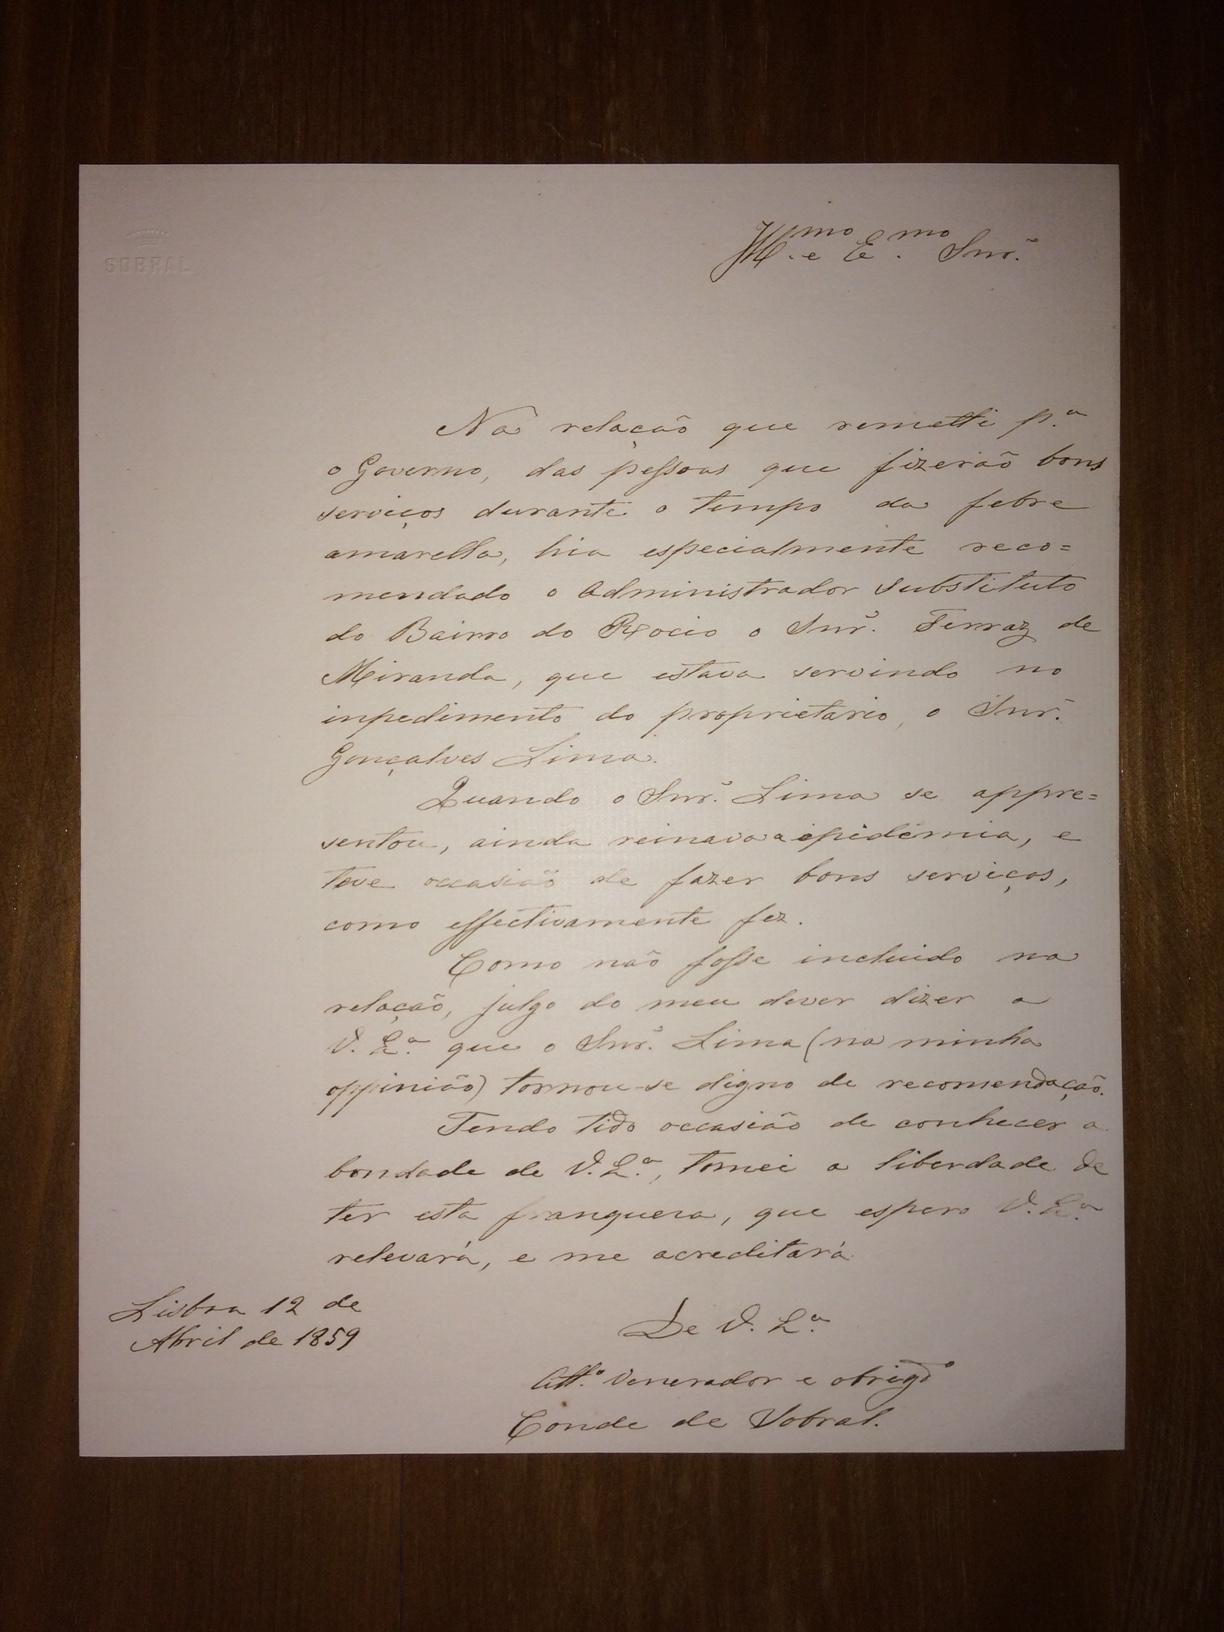 SOBRAL
Ill.mo e E.mo Snr.
Na relação que remetti p.a
o Governo, das pessoas que fizerão bons
serviços durante o tempo da febre
amarella, hia especialmente reco=
mendado o Administrador Substituto
do Bairro do Rocio o Snr. Ferraz de
Miranda, que estava servindo no
inpedimento do proprietario, o Snr.
Gonçalves Lima.
Quando o Snr. Lima se appre=
sentou, ainda reinava a epidémia, e
teve occasião de fazer bons serviços,
como effectivamente fez.
Como não fosse incluido na
relação, julgo do meu dever dizer a
V. E.a que o Snr. Lima (na minha
oppinião) tornou-se digno de recomendação.
Tendo tido occasião de conhecer a
bondade de V. E.a, tomei a liberdade de
ter esta franqueza, que espero V. E.a
relevará, e me acreditará
Lisboa 12 de
Abril de 1859
De V. E.a
Att.o Venerador e obrigd.o
Conde de Sobral.